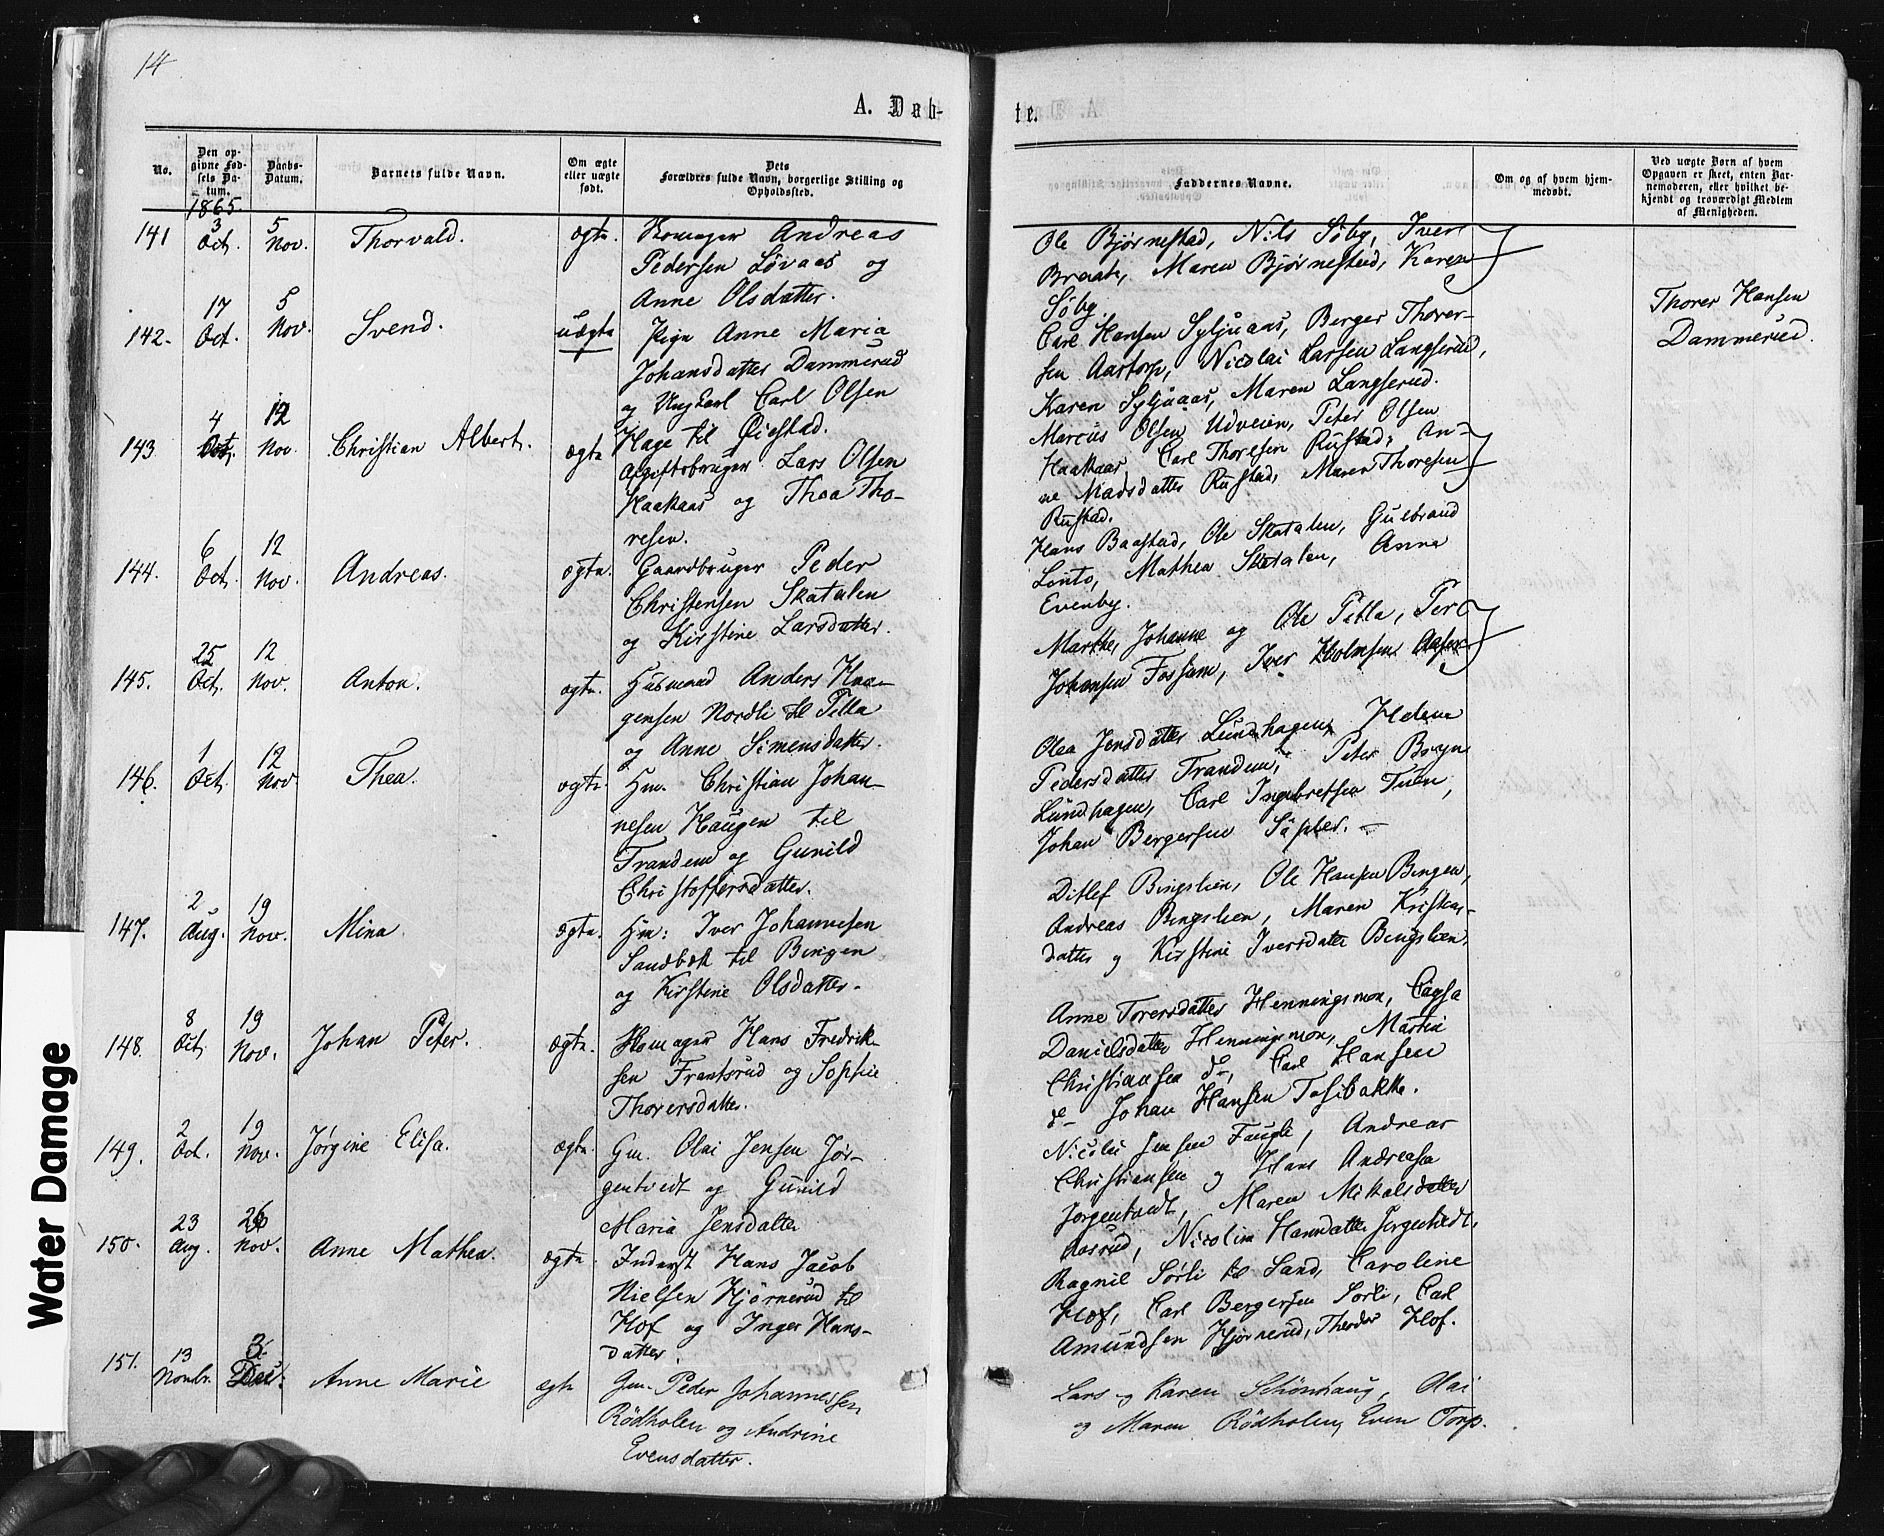 14
A. Døb-
te.
No.
Den op-
givne Fød-
sels Da-
tum.
Daabs-
Datum.
Barnets fulde Navn.
Om ægte
eller uægte
født.
Dets
Forældres fulde Navn, borgerlige Stilling og
Opholdssted.
Faddernes Navne.
Om og af hvem hjem-
medøbt.
Ved uægte Børn af hvem
Opgaven er skeet, enten Bar-
nemoderen, eller hvilket be-
kjendt og troværdigt Medlem
af Menigheden.
1865.
141 3 Oct. 5 Nov. Thorvald. ægte. Skomager Andreas
Pedersen Løvaas og
Anne Olsdatter.
Ole Bjørnestad, Nils Søby, Iver
Braate, Maren Bjørnestad, Karen
Søby.
142. 17 Oct. 5 Nov. Svend. uægte Pige Anne Maria
Johansdatter Dammerud
og Ungkarl Carl Olsen
Hage til Øiestad.
Carl Hansen Syljuaas, Berger Thorer-
sen Aastorp, Nicolai Larsen Langserud,
Karen Syljuaas, Maren Langserud.
Thorer Hansen
Dammerud.
143 4 Oct. 12 Nov. Christian Albert. ægte Lars Olsen
Haakaas og Thea Tho-
resen.
Marcus Olsen Udveien, Peter Olsen
Haakaas, Carl Thoresen Rustad, An-
ne Madsdatter Rustad, Maren Thoresen
Rustad.
144. 6 Oct. 12 Nov. Andreas. ægte. Gaardbruger Peder
Christensen Skatalen
og Kirstine Larsdatter.
Hans Baastad, Ole Skatalen, Gulbrand
Lonto, Mathea Skatalen, Anna
Evenby.
145. 25 Oct. 12 Nov. Anton. ægte. Husmand Anders Haa-
gensen Nordli til Tella
og Anne Simensdatter.
Marthe, Johanne og Ole Tella, Per
Johansen Fossum, Iver Holmsen
146. 1 Oct. 12 Nov. Thea. ægte. Hm. Christian Johan-
nesen Haugen til
Trandem og Gunild
Christoffersdatter.
Olea Jensdatter Lundhagen, Helene
Pedersdatter Trandem, Peter Bryn
Lundhagen, Carl Ingebretsen Tuen,
Johan Bergersen Sæpler. -
147. 2 Aug. 19 Nov. Mina. ægte. Hm: Iver Johannesen
Sandbek til Bingen
og Kirstine Olsdatter.
Ditlef Bingslien, Ole Hansen Bingen,
Andreas Bingslien, Maren Kristias-
datter og Kirstine Iversdatter Bingslien.
148. 8 Oct. 19 Nov. Johan Peter. ægte. Skomager Hans Fredrik-
sen Frantsrud og Sophie
Thorersdatter.
Anne Torersdatter Henningsmon, Cagsa
Danielsdatter Henningsmon, Martin
Christiansen do, Carl Hansen
do Johan Hansen Tosebakke.
149. 2 Oct. 19 Nov. Jørgine Elisa. ægte. Gm. Olai Jensen Jør-
gentvedt og Gunild
Maria Jensdatter
Nicolai Jensen Faugli, Andreas
Christiansen og Hans Andreasen
Jørgentvedt, Maren Mikalsdatter
Aasrud, Nicoline Hansdatter Jørgentvedt.
150. 23 Aug. 26 Nov. Anne Mathea. ægte Inderst Hans Jacob
Nielsen Hjørnerud til
Hof og Inger Hans-
datter.
Ragnil Sørli til Sand, Caroline
Hof, Carl Bergersen Sørli, Carl
Amundsen Hjørnerud, Theodor Hof.
151. 13 Novbr. 3 Dec. Anne Marie ægte Gm. Peder Johannessen
Rødholen og Andrine
Evensdatter.
Lars og Karen Schønhaug, Olai
og Maren Rødholen, Even Torp.
Water Damage